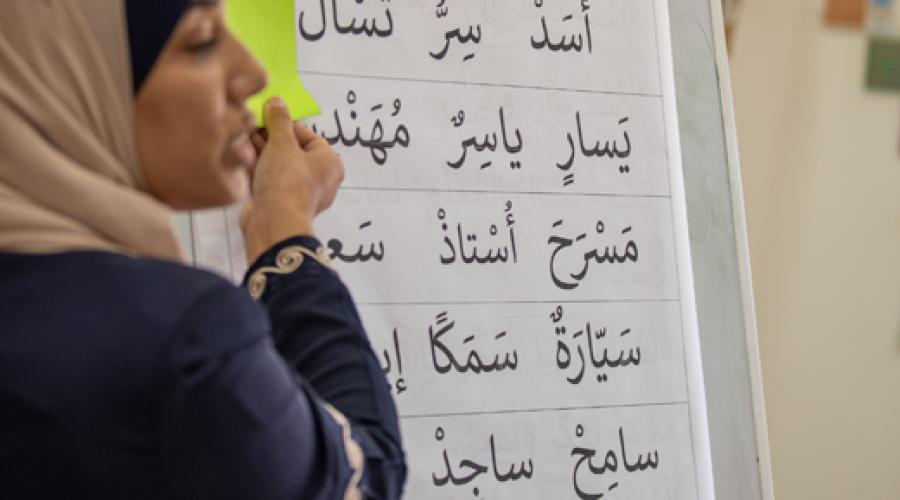 أَسَدْ سِرُّ تَسْأَل
يَسارٍ ياسِرٌ
مَسْرَحَ أُسْتاذْ
سَيّارَةٌ سَمَكًا
سامِحْ ساجِدْ